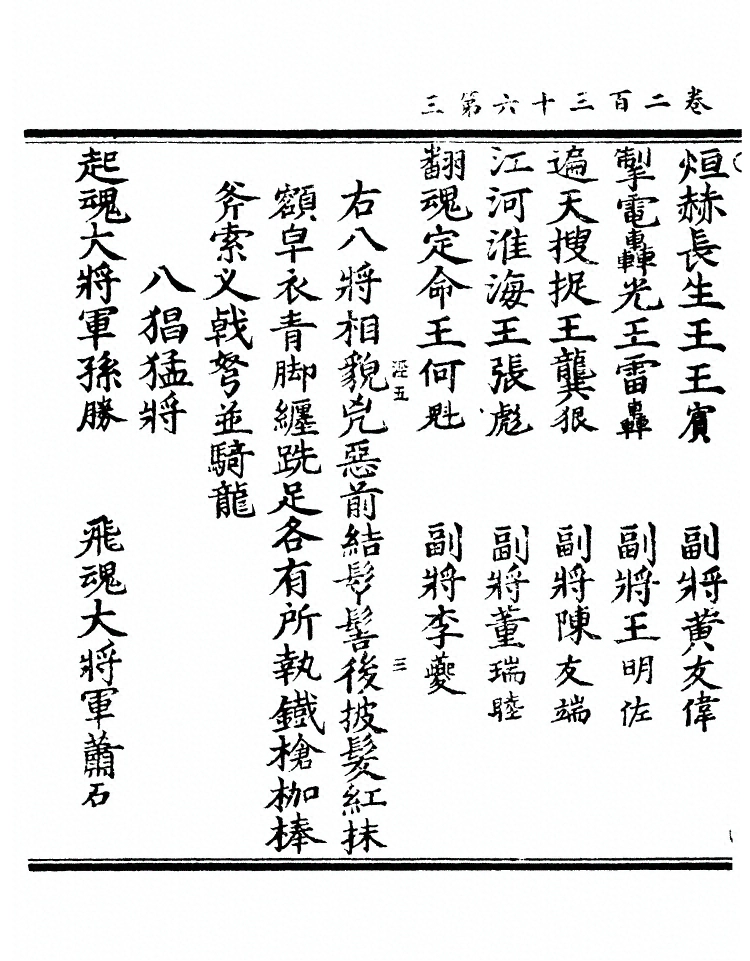 卷二百三十六第三
烜赫長生王王賓　副將黃友偉
掣電轟光王雷轟　副將王明佐
遍天搜捉王龔狠　副將陳友端
江河淮海王張彪　副將董瑞睦
翻魂定命王何魁　副將李夔
五　三
右八將相貌兇惡前結髻後披髮紅抹
額皁衣青脚纏跣足各有所執鐵槍枷棒
斧索义戟弩並騎龍
八猖猛將
起魂大將軍孫勝　飛魂大將軍蕭石